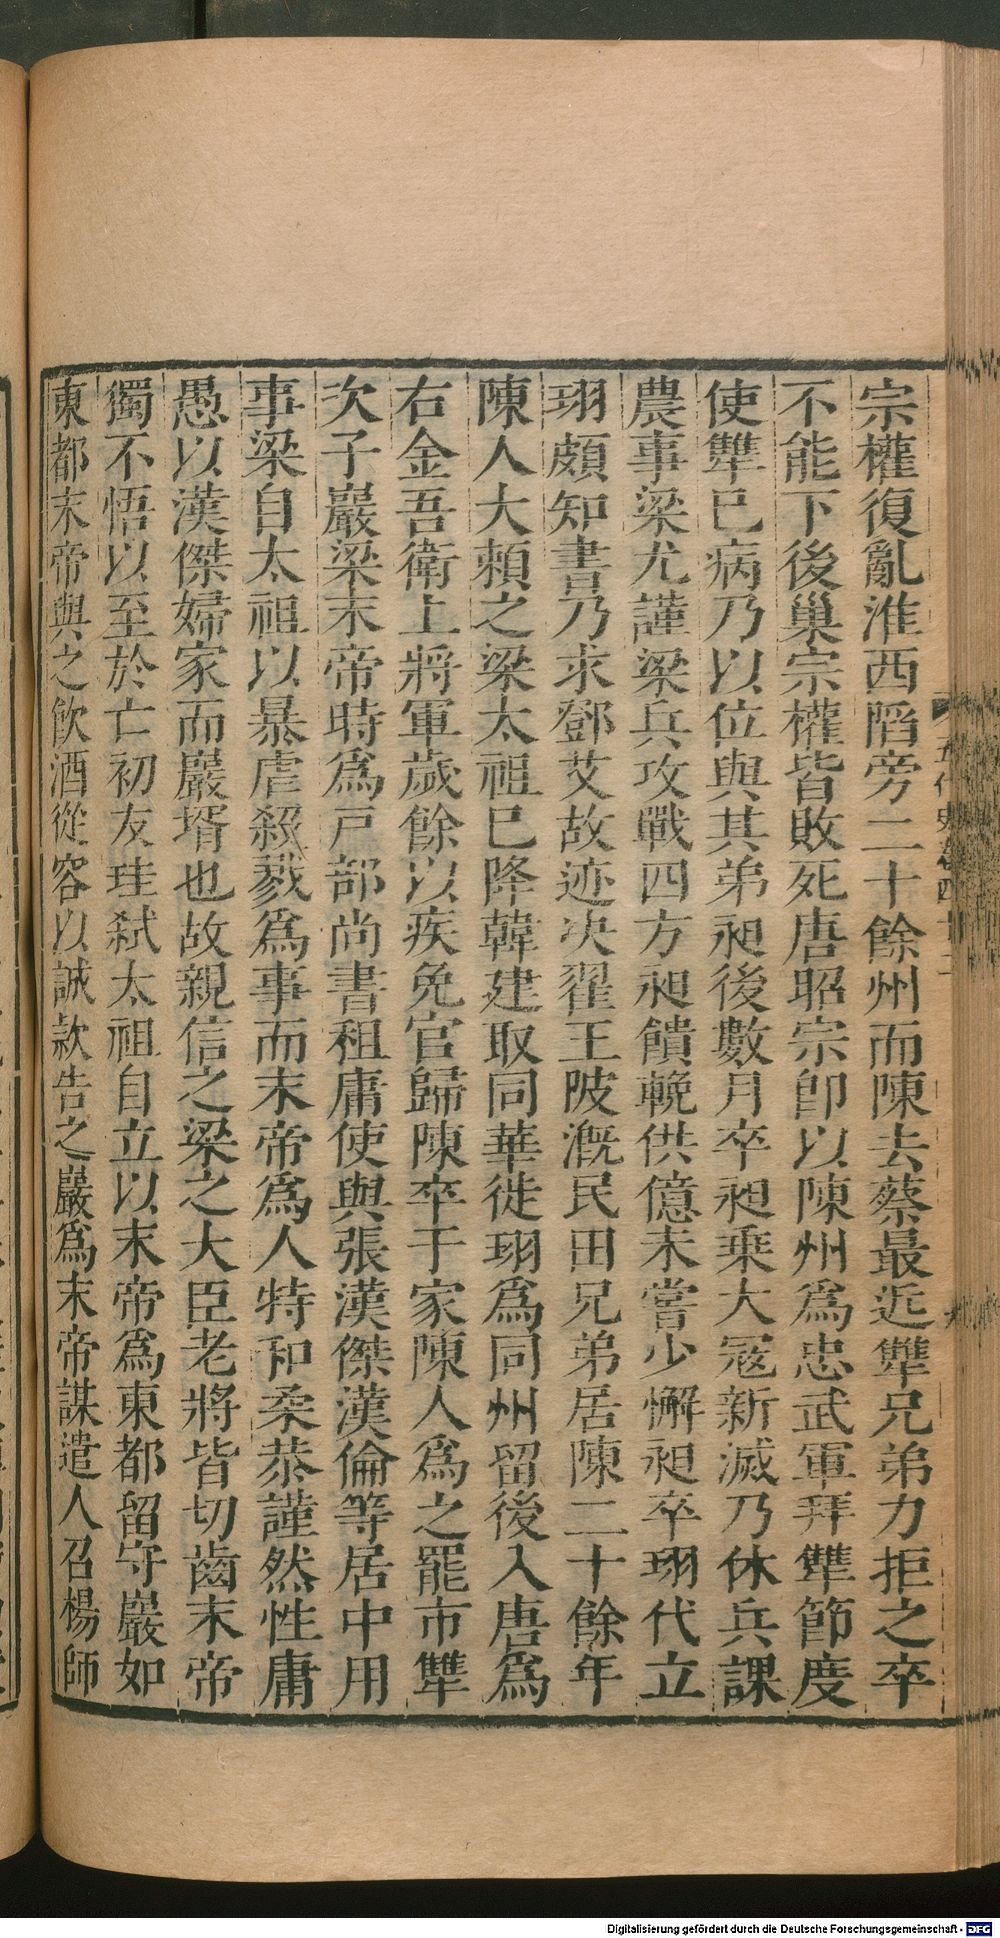 宗權復亂淮西陷旁二十餘州而陳去蔡最近犨兄弟力拒之卒
不能下後巢宗權皆敗死唐昭宗卽以陳州爲忠武軍拜犨節度
使犨已病乃以位與其弟昶後數月卒昶乗大冦新滅乃休兵課
農事梁尤謹梁兵攻戰四方昶饋輓供億未嘗少懈昶卒珝代立
珝頗知書乃求鄧艾故迹决翟王陂漑民田兄弟居陳二十餘年
陳人大賴之梁太祖已降韓建取同華徙珝爲同州留後入唐爲
右金吾衛上將軍歲餘以疾免官歸陳卒于家陳人爲之罷市犨
次子巖梁末帝時爲戸部尚書租庸使與張漢傑漢倫等居中用
事梁自太祖以暴虐殺戮爲事而末帝爲人特和柔恭謹然性庸
愚以漢傑婦家而巖壻也故親信之梁之大臣老將皆切齒末帝
獨不悟以至於亡初友珪弑太祖自立以末帝爲東都留守巖如
東都末帝與之飲酒從容以誠款告之巖爲末帝謀遣人召楊師
五代史卷四十二
Digitalisierung gefördert durch die Deutsche Forschungsgemeinschaft - DFG